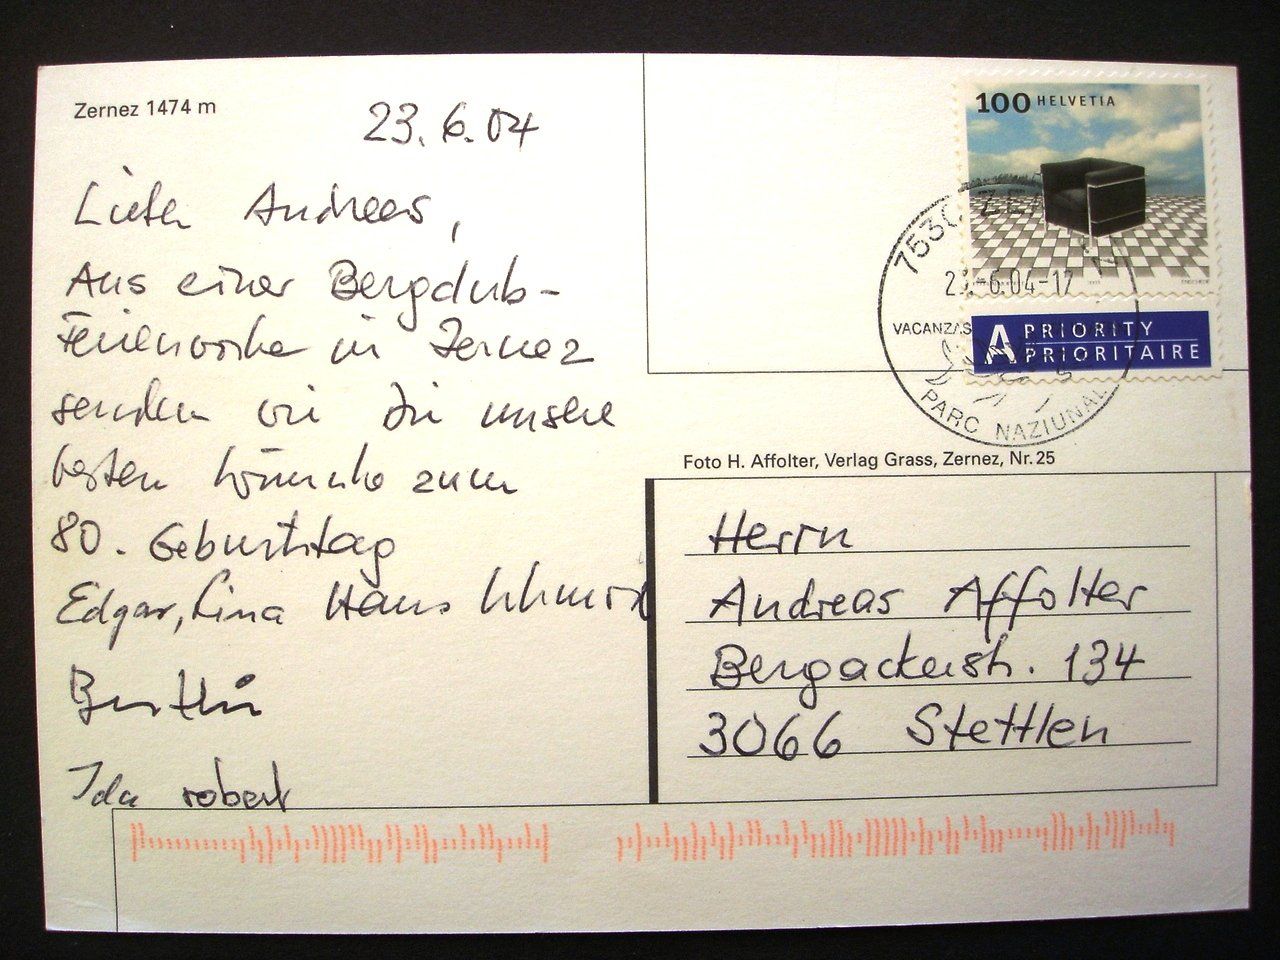 Zernez 1474 m
23.6.04
Lieber Andreas,
Aus einer Bergclub-
Ferienwoche in Zernez
senden wir Dir unsere
besten Wünsche zum
80. Geburtstag
Edgar, Lina Hans
Ida robert
100 HELVETIA
7530 ZE
23.-6.04-17
VACANZAS
PARC NAZIUNAL
A PRIORITY
PRIORITAIRE
Foto H. Affolter, Verlag Grass, Zernez, Nr. 25
Herrn
Andreas Affolter
Bergackerstr. 134
3066 Stettlen